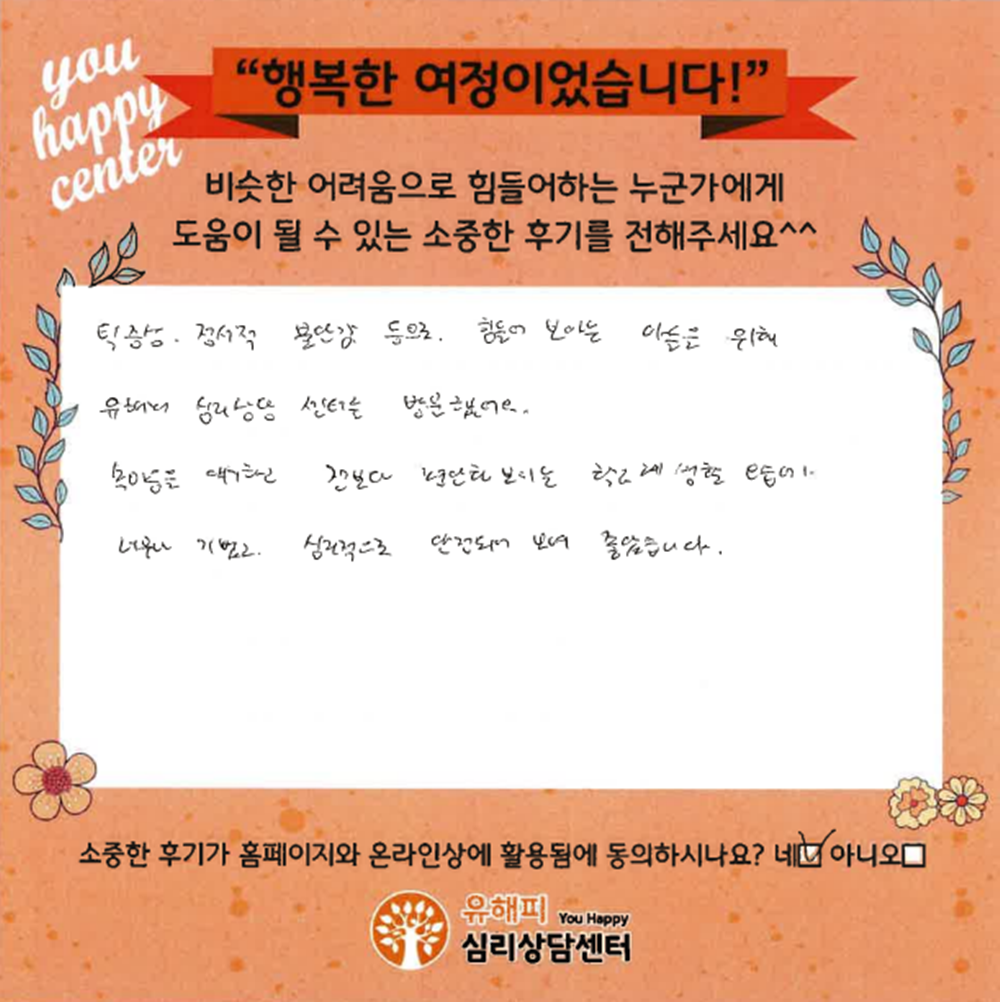 you
happy
center
“행복한 여정이었습니다!”
비슷한 어려움으로 힘들어하는 누군가에게
도움이 될 수 있는 소중한 후기를 전해주세요^^
틱증상. 정서적 불안감 등으로. 힘들어 보이는 아들을 위해
유해피 심리상담 센터를 방문했어요.
속마음을 얘기하고 전보다 편안해 보이는 학교생활 모습에
너무나 기쁘고. 심리적으로 안전되어 보여 좋았습니다.
소중한 후기가 홈페이지와 온라인상에 활용됨에 동의하시나요? 네 아니오
유해피 You Happy
심리상담센터